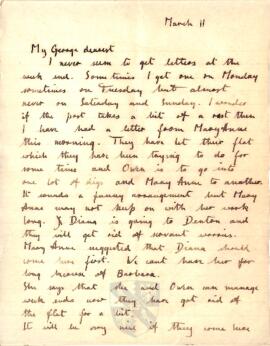 March 11
My George dearest
I never seem to get letters at the
week end. Sometimes I get one on Monday
sometimes on Tuesday but almost
never on Saturday and Sunday. I wonder
if the post takes a bit of a rest then
I have had a letter from Mary Anne
this morning. They have let their flat
which they have been trying to do for
some time and Owen is to go into
one lot of digs and Mary Anne to another.
It sounds a funny arrangement but Mary
Anne may not keep on with her work
long. If Diana is going to Denton and
they will get rid of servant worries.
Mary Anne suggested that Diana should
come here first. We cant have her for
long because of Barbara.
She says that she and Owen can manage
week ends now they have got rid of
the flat for a bit.
It will be very nice if they come here